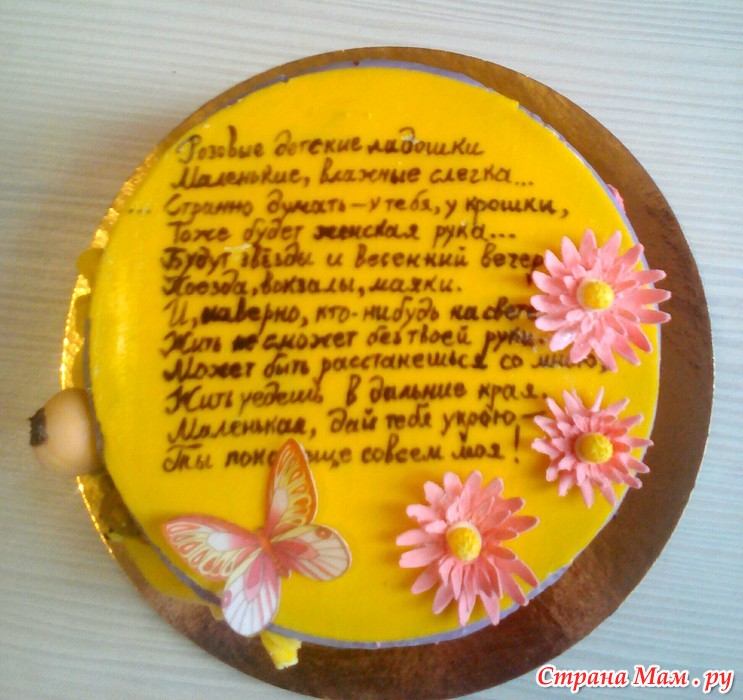 Розовые детские ладошки
Маленькие, влажные слегка...
... Странно думать - у тебя, у крошки,
Тоже будет женская рука...
Будут звёзды и весенний вечер
Поезда, вокзалы, маяки.
И, наверно, кто-нибудь на свете
Жить не сможет без твоей руки.
Может быть расстанешься со мною,
Жить уедешь в дальние края
Маленькая, дай тебя укрою,
Ты пока еще совсем моя!
Страна Мам.ру